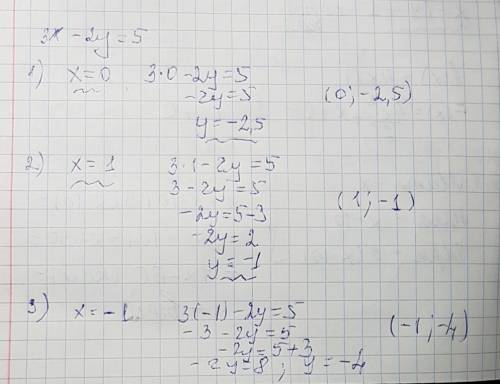 3x - 2y = 5
1) x = 0 3·0 - 2y = 5
-2y = 5
y = -2,5
(0; -2,5)
2) x = 1 3·1 - 2y = 5
3 - 2y = 5
-2y = 5-3
-2y = 2
y = -1
(1; -1)
3) x = -1. 3(-1) - 2y = 5
-3 - 2y = 5
-2y = 5+3
-2y = 8; y = -4
(-1; -4)